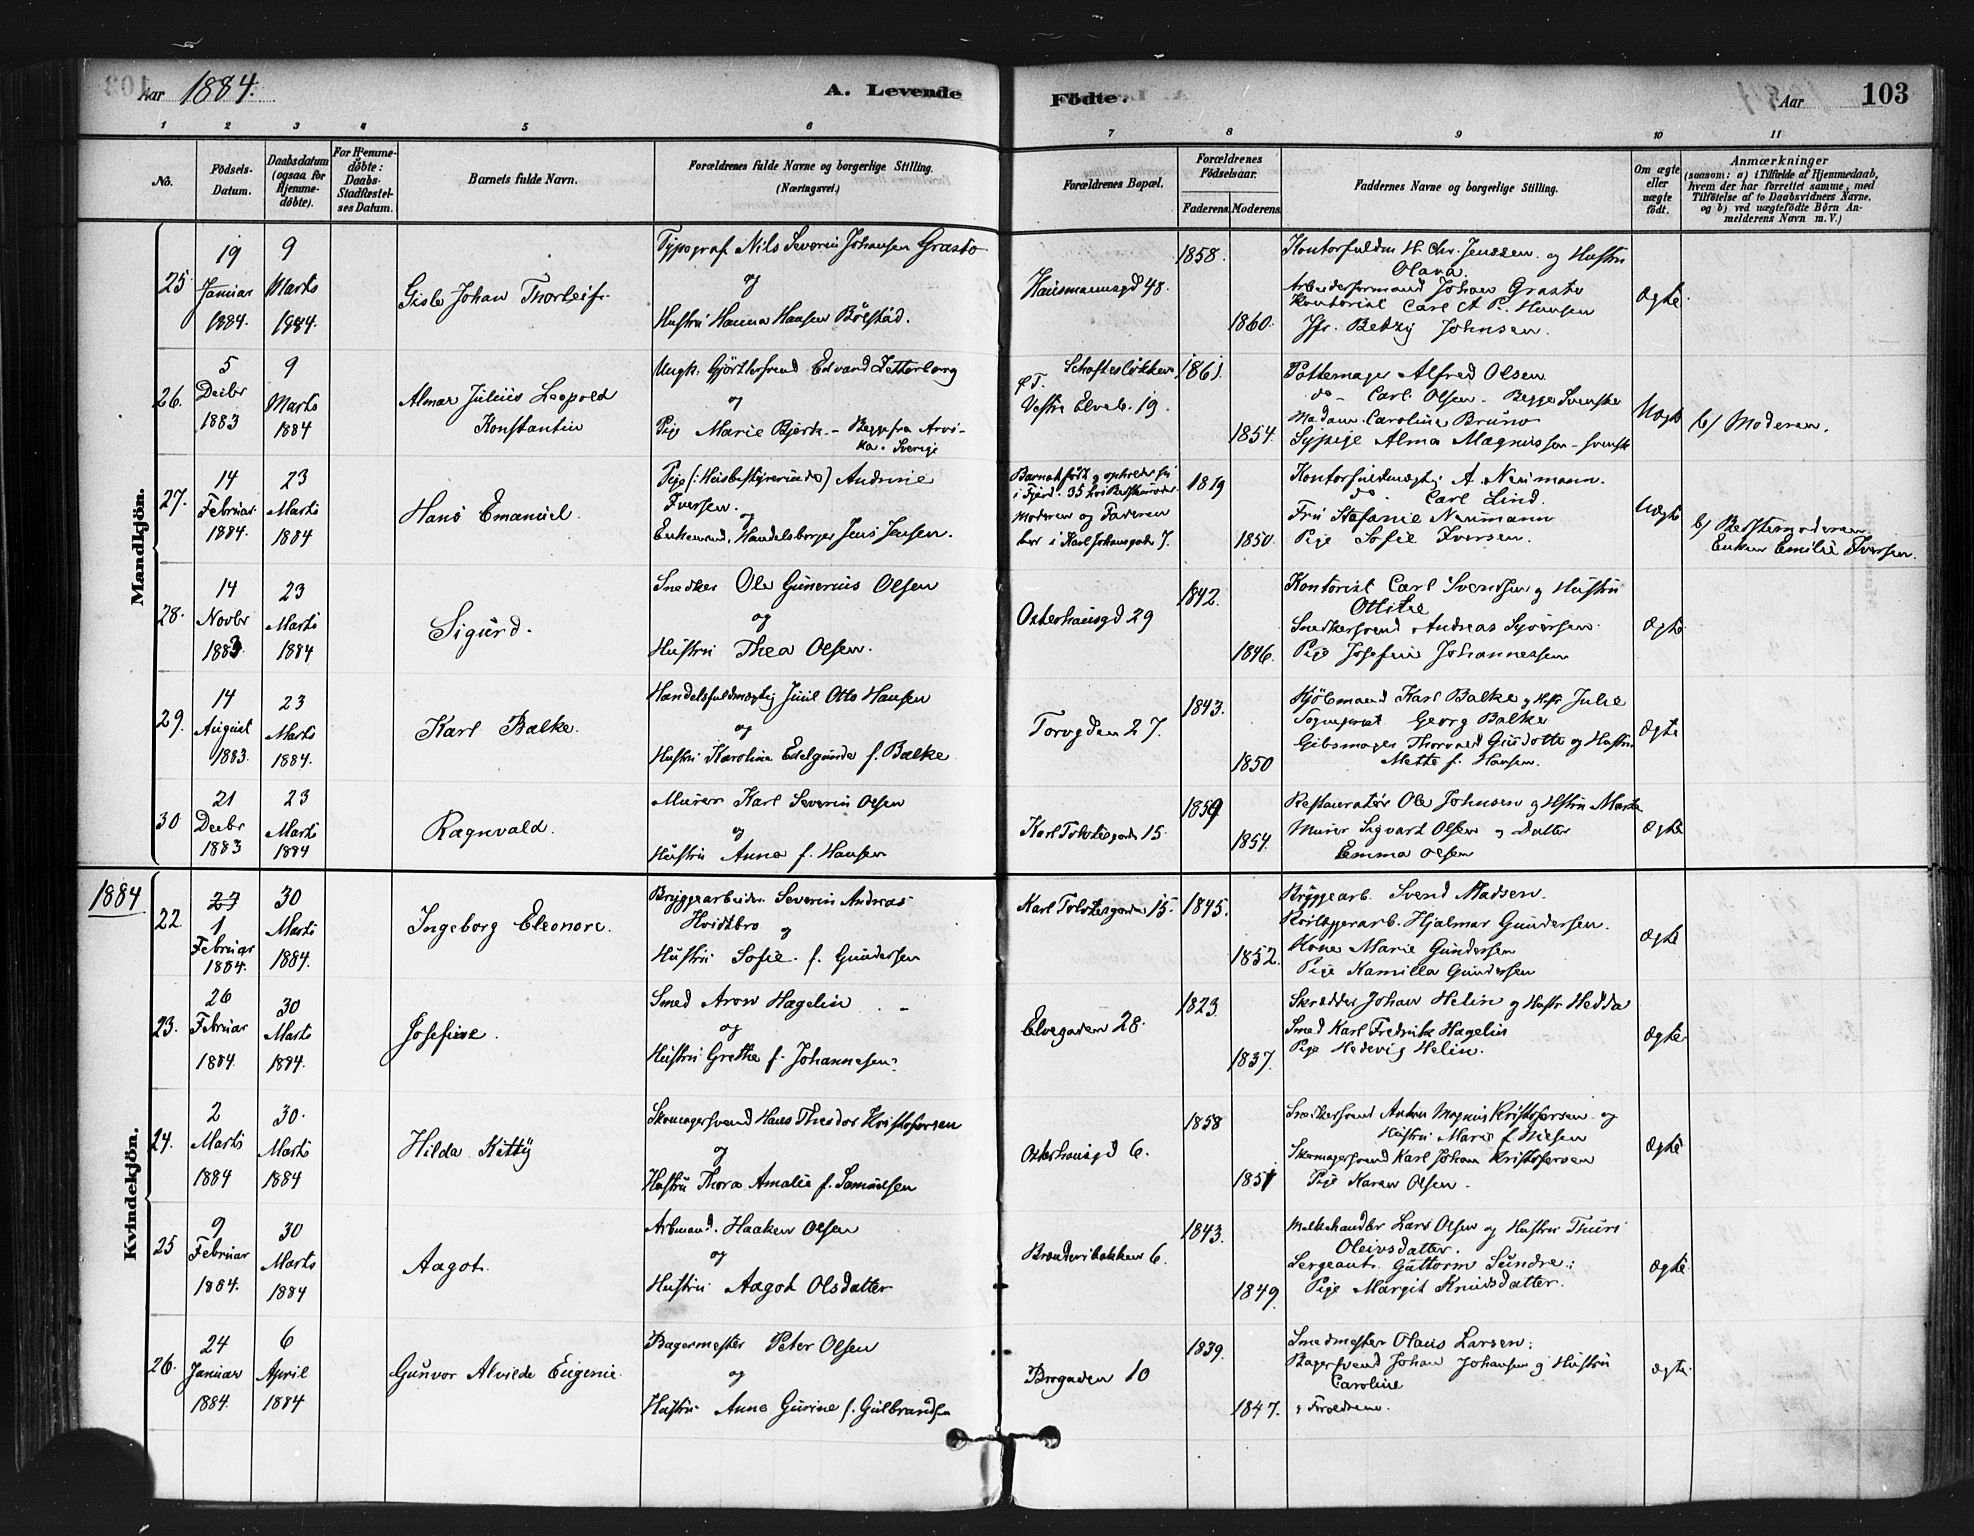 Aar 1884. A. Levende Födte. Aar 103
1 2 3 4 5 6 7 8 9 10 11
No.
Födsels-Datum.
Daabsdatum (ogsaa for Hjemme-döbte).
For Hjemme-döbte: Daabs-Stadfæstel-ses Datum.
Barnets fulde Navn.
Forældrenes fulde Navne og borgerlige Stilling.
(Næringsvei.)
Forældrenes Bopæl.
Forældrenes Födselsaar.
Faderens. Moderens.
Faddernes Navne og borgerlige Stilling.
Om ægte eller uægte födt.
Anmærkninger
(saasom: a) i Tilfælde af Hjemmedaab,
hvem der har forrettet samme, med
Tilföielse af to Daabsvidners Navne,
og b) ved uægtefödte Börn An-
melderens Navn m. V.)
Mandkjön.
25. 19 Januar 1884. 9 Marts 1884.
Gisle Johan Thorleif.
Typograf Nils Severin Johansen Grasto
og
Hustru Hanna Hansen Bölstad.
Hausmannsgd 48.
1858. 1860.
Kontorfuldm H. Chr. Jenssen og Hustru
Olava.
Arbeiderformand Johan Grasto
Kontorist Carl A. P. Hansen
Jfr. Betzy Johnsen.
Ægte.
26. 5 Decbr 1883 9 Marts 1884
Almar Julius Leopold
Konstantin
Ungk. Gjörtlersvend Edvard Zetterborg
og
Pige Marie Björk - Begge fra Arvi-
ka. Sverige
Schafteslökken
Vestre Elveb. 19.
1861. 1854.
Pottemager Alfred Olsen.
do - Carl Olsen - Begge Svenske
Madam Caroline Bruno
Sypige Alma Magnusson - svensk
Uægte
b) Moderen.
27. 14 Februar 1884. 23 Marts 1884
Hans Emanuel.
Pige (: Husbestyrerinde) Andrine
Iversen.
og
Enkemand, Handelsborger Jens Jensen.
Barnet födt og opholder sig
i Fjerd. 35 hos Bedstemoder
Moderen og Faderen
bor i Karl Johansgade 7.
1819 1850.
Kontorfuldmægtig A. Neumann.
do Carl Lind.
Fru Stefanie Neumann
Pige Sofie Iversen.
Uægte
b) Bedstemoderen
Enken Emilie Iversen.
28. 14 Novbr 1883. 23 Marts 1884
Sigurd.
Snedker Ole Gunerius Olsen
og
Hustru Thea Olsen.
Osterhausgd 29
1842. 1846.
Kontorist Carl Svendsen og Hustru
Ottilie
Snedkersvend Andreas Syversen.
Pige Josefine Johannessen
Ægte
29. 14 August 1883. 23 Marts 1884.
Karl Balke.
Handelsfuldmægtig Juul Otto Hansen
og
Hustru Karoline Edelgunde f. Balke
Torvgden 27.
1843. 1850
Kjöbmand Karl Balke og Hstr Julie
Georg Balke
Gibsmager Thorvald Guidotti og Hustru
Mette f. Hansen.
Ægte
30 21 Decbr 1883 23 Marts 1884
Ragnvald.
Murer Karl Severin Olsen
og
Hustru Anna f. Hansen
Karl Tolvtesgade 15.
1859 1854.
Restauratör Ole Johnsen og Hstru Marte
Murer Sigvart Olsen og Datter
Emma Olsen
Ægte
1884
Kvindekjön.
22. 27 1 Februar 1884. 30 Marts 1884.
Ingeborg Eleonore.
Bryggearbeider Severin Andreas
Hvidtbro og
Hustru Sofie f. Gundersen
Karl Tolvtesgade 15.
1845. 1852.
Bryggearb. Svend Madsen.
Hjalmar Gundersen.
Kone Marie Gundersen
Pige Kamilla Gundersen
Ægte
23. 26 Februar 1884. 30 Marts 1884.
Josefine.
Smed Aron Hagelin
og
Hustru Grethe f. Johannesen
Elvegaden 28.
1823. 1837.
Skrædder Johan Helin og Hustr Hedda
Smed Karl Fredrik Hagelin
Pige Hedevig Helin.
Ægte.
24. 2 Marts 1884 30. Marts 1884
Hilda Kitty
Skomagersvend Hans Theodor Kristofersen
og
Hustru Thora Amalie f. Samuelsen
Osterhausgd 6.
1858 1851
Snedkersvend Anton Magnus Kristofersen og
Hustru Marie f. Nielsen
Skomagersvend Karl Johan Kristofersen
Pige Karen Olsen.
Ægte
25 9 Februar 1884. 30 Marts 1884
Aagot.
Arbmand. Haaken Olsen
og
Hustru Aagot Olsdatter
Brænderibakken 6.
1843. 1849.
Melkehandler Lars Olsen og Hustru Thuri
Oleivsdatter.
Sergeant Guttorm Sundre;
Pige Margit Knudsdatter.
Ægte
26. 24 Januar 1884. 6 April 1884
Gunvor Alvilde Eugenie.
Bagermester Peter Olsen
og
Hustru Anne Gurine f. Gulbrandsen
Brogaden 10
1839. 1847.
Smedmester Olaus Larsen;
Bagersvend Johan Johansen og Hustru
Caroline
og Forældrene.
Ægte